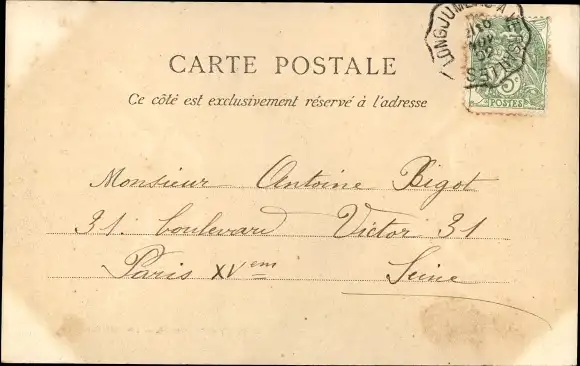 LONGJUMEAU A VERSAILLES
5c
POSTES
CARTE POSTALE
Ce côté est exclusivement réservé à l'adresse
Monsieur Antoine Bigot
31. boulevard Victor 31
Paris XVem Seine